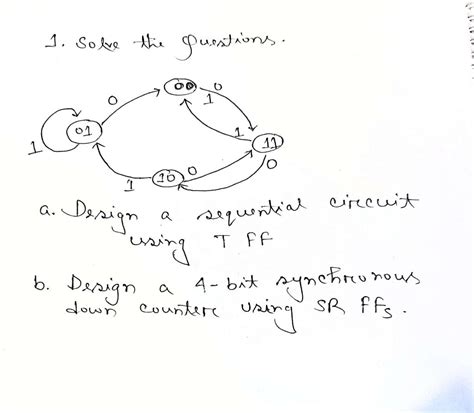 1. Solve the Questions.
00 0
0 1
01 1 11
1 10 0 0
1
a. Design a sequential circuit
using T FF
b. Design a 4-bit synchronous
down counter using SR FFs.